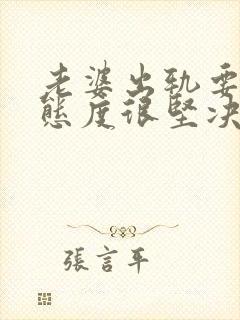 老婆出轨要
態度很堅决
張言平